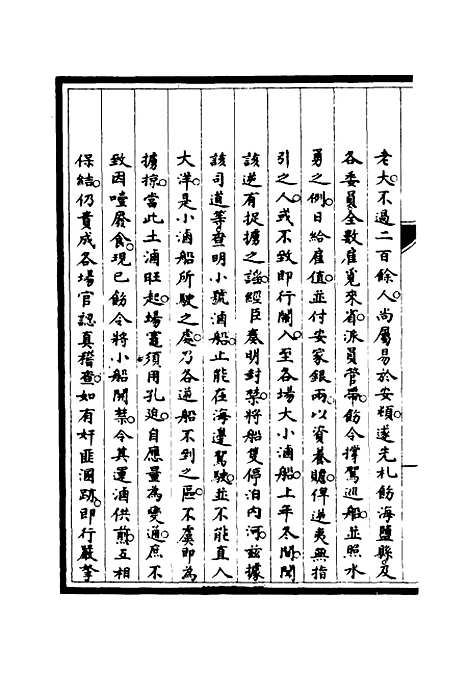 老大不過二百餘人尚屬易於安頓遂先札飭海鹽縣及
各委員全數雇覓來省派員管帶飭令撑駕巡船並照水
勇之例日給雇值並付安家銀兩以資養贍俾逆夷無指
引之人或不致即行闌入至各場大小滷船上年冬間聞
該逆有捉擄之謡經臣奏明封禁將船隻停泊内河兹據
該司道等查明小號滷船止能在海邊駕駛並不能直入
大洋是小滷船所駛之處乃各逆船不到之區不虞即為
擄掠當此土滷旺起場竈須用孔迫自應量為變通庶不
致因噎廢食現已飭令將小船開禁令其運滷供煎互相
保結仍責成各場官認真稽查如有奸匪溷跡即行嚴拏